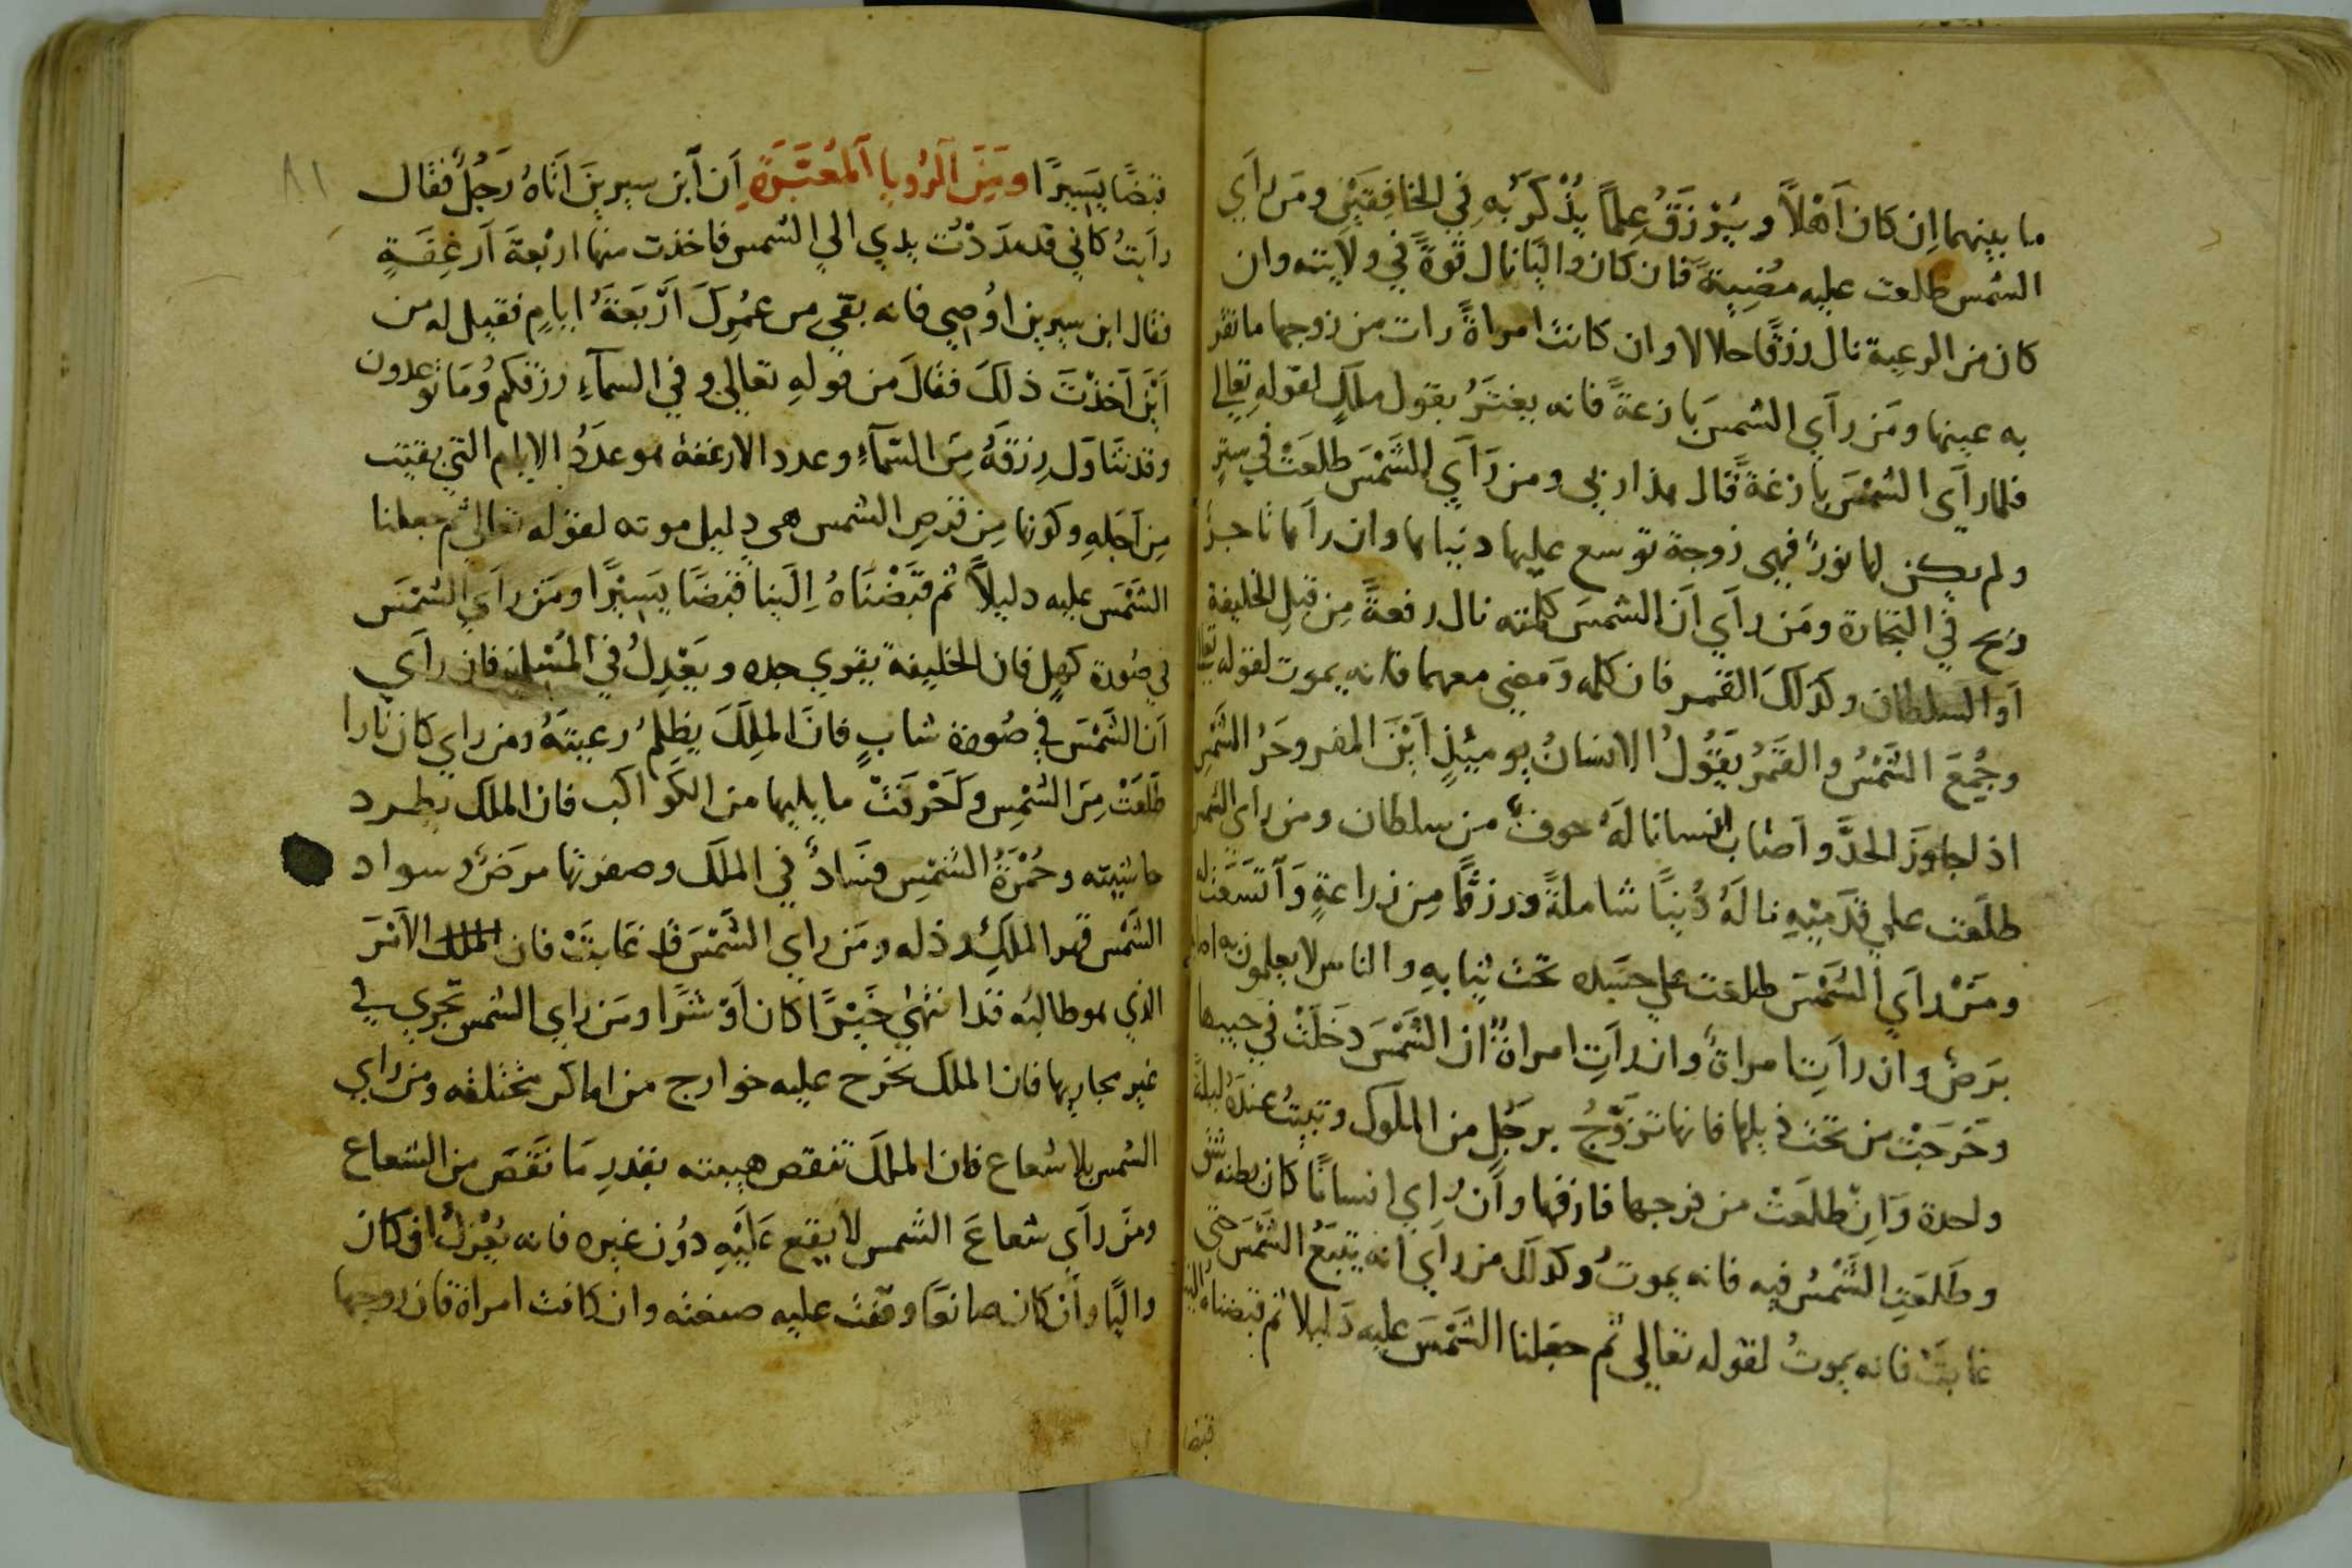 ما بينهما اِن كان اَهْلاً ويُرْزَقُ عِلماً يُذْكَرُ بهِ في الخافِقَيْنِ ومَن رأي
الشمس طلعت عليه مُضِيةً فان كان واليًا نال قوةً في ولايته وان
كان من الرعية نال رزقًا حلالا وان كانت امراةً رات من زوجها ما تقر
به عينها ومَن رأي الشمسَ بازغةً فانه يغترُ بقول ملكٍ لقوله تعالي
فلما رآى الشمْسَ بازغةً قال هذا ربي ومن رَآي الشَّمْسَ طلعَتْ في سترٍ
ولم يكن لها نورٌ فهى زوجة توسع عليها دنياها وان رآها تاجرٌ
ربح في التجارة ومَن رآي آن الشمسَ كلمته نال رفعةً مِن قبلِ الخليفة
اَو السلطان وكذلكَ القمر فان كلمه وَمضي معهما فانه يموت لقوله تعالي
وجُمِعَ الشَمْسُ والقَمَرُ يَقُولُ الانسانُ يوميئذٍ اَيْنَ المفر وحَرُ الشَمْسِ
اذا جاوزَ الحدَّ واَصاب انسانا لهُ خوفٌ من سلطان ومن رأي الشمس
طلَعت علي قدَميْهِ نالهُ دُنيًا شاملةً ورزقًا مِن زراعةٍ وَاتسَعَت له
ومَنْ رآي الشَمْسَ طلعت علي جسَده تحت ثيابهِ والناس لا يعلمون به اصابه
برَصٌ وان رآتِ امراةٌ ان الشَّمْسَ دخَلَتْ في جيبها
وخَرجَتْ من تحت ذيلها فانها تزوَّجُ برجُلٍ من الملوك وتبيتُ عندهُ ليلةً
واحدة وَاِنْ طلعَتْ من فرجها فازفها واَن راي انسانًا كان بطنه شق
وطَلعَتِ الشَّمْسُ فيه فانه يموتُ وكذلك من رآي انه يتبَعُ الشمْسَ حتي
غابَتْ فانه يموتُ لقوله تعالي ثم جعَلنا الشَمْسَ عليه دَليلا ثم قبضناه الينا
قبضا
قبضًا يَسِيرًا ومِنَ الرُويا المُعتَبَرَةِ اَن اَبن سيرينَ اَتاهُ رَجُلٌ فقال
رآيتُ كاني قد مدَدْتُ يدي الي الشمس فاخذت منها اربعةَ اَرغِفَةٍ
فقال ابن سيرين اوُصِي فانه بقي من عمُرِكَ اَرْبَعَةُ ايامٍ فقيل له من
اَيْنَ اَخذْتَ ذلكَ فقالَ من قولهِ تعالي وفي السمآءِ رزقكم وُمَا توعدون
وقد تنَاوَل رِزقَهُ مِنَ السَّمآءِ وعدد الارغفة هو عدَدُ الايام التي بقيت
مِن اَجَلهِ وكونها مِن قرصِ الشمس هى دليل موته لقوله تعالي ثم جعلنا
الشَمْسَ عليه دليلاً ثم قبَضْنَاهُ اِلَينا قبْضًا يَسِيْرًا ومَنْ رآي الشمْسَ
في صُورة كهلٍ فان الخليفة يقوي جده ويَعْدِلُ في المُسْلمين فان رآي
اَن الشَمْسَ في صُورة شابٍ فانَ الملِكَ يظلِمُ رعيتهُ ومن راي كان نارا
طلَعَتْ مِنَ الشَمْسِ وَاحْرقتْ ما يليها من الكَواكب فان الملك يطرد
حاشيته وحُمْرَةُ الشمْسِ فسَادٌ في الملك وصفرتها مرَضٌ وسواد
الشَمْسِ قهر الملكِ وذله ومَن راي الشَمْسَ قد غابَتْ فان الملك الاَمْرَ
الذي هو طالبُه قد انتهىٰ خَيْرًا كان اَوْ شرًا ومَن راي الشمس تجري في
غير مجاريها فان الملك تخرج عليه خوارج من اماكن مختلفه ومن راي
الشمس بلا شعاع فان الملك تنقص هيبته بقدرِ مَا نقصَ من الشعاع
ومَن رآي شعاعَ الشمس لا يقع عَليْهِ دوُن غيره فانه يُعْزلُ ان كان
واليًا واَن كان صانعًا وقفت عليه صنعته وان كانت امراة فان زوجها